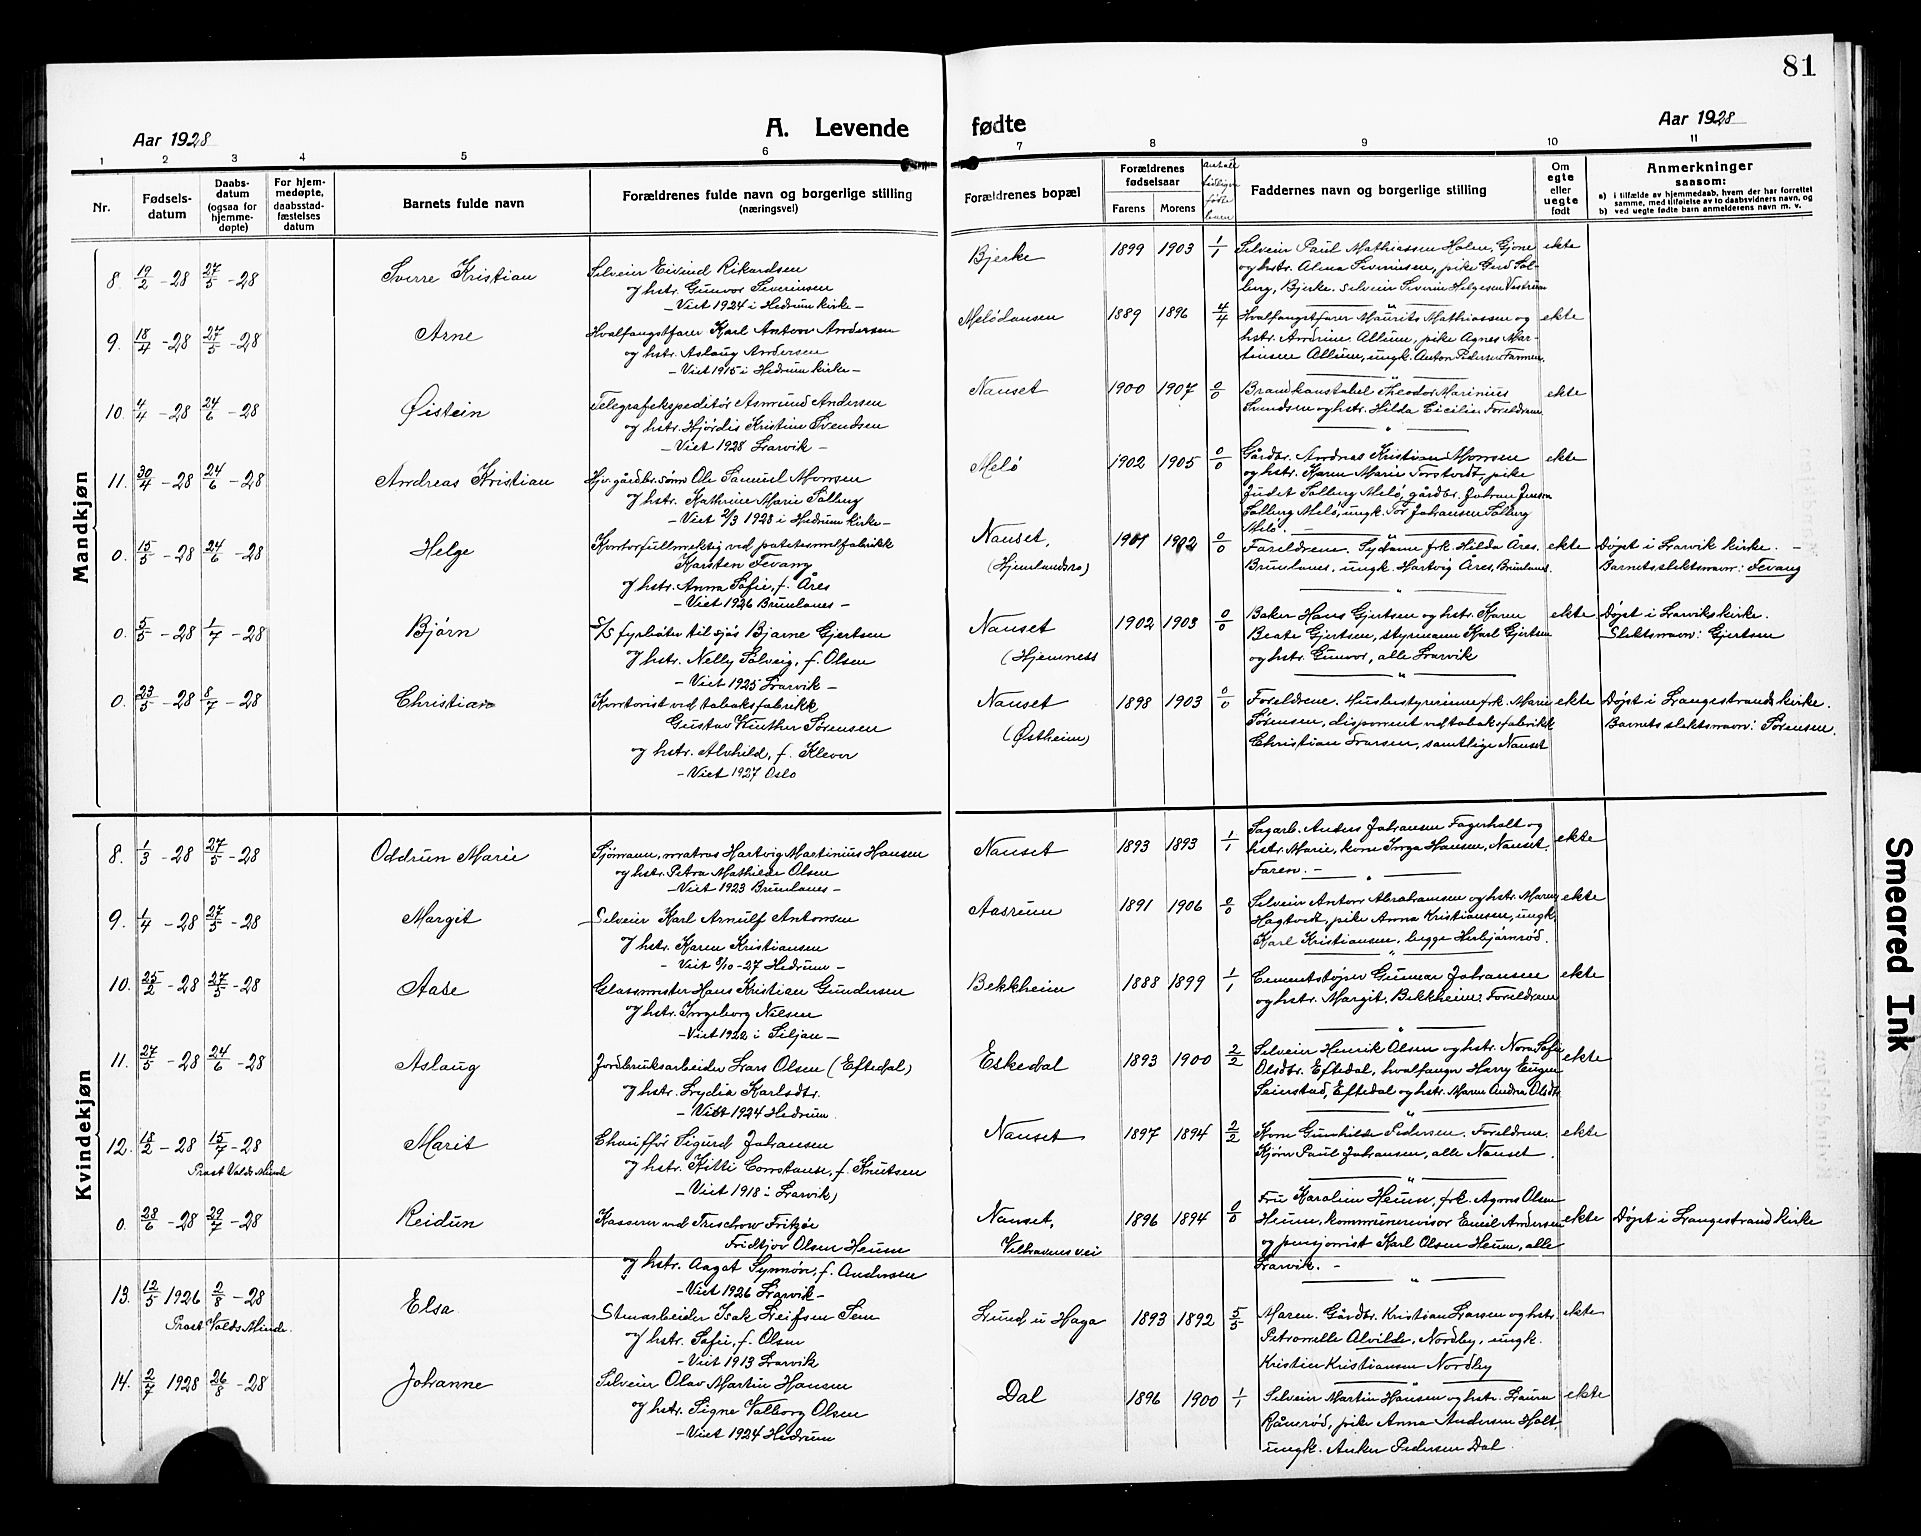 81
Aar 1928
A. Levende
fødte
Aar 1928
1 2 3 4 5 6 7 8 9 10 11
Nr.
Fødsels-
datum
Daabs-
datum
(ogsaa for
hjemme-
døpte)
For hjem-
medøpte,
daabsstad-
fæstelses
datum
Barnets fulde navn
Forældrenes fulde navn og borgerlige stilling
(næringsvei)
Forældrenes bopæl
Forældrenes
fødselsaar
Farens Morens
Faddernes navn og borgerlige stilling
Om
egte
eller
uegte
født
Anmerkninger
saasom:
a) i tilfælde av hjemmedaab, hvem der har forrettet
samme, med tilføielse av to daabsvidners navn, og
b) ved uegte fødte barn anmelderens navn m. v.
Mandkjøn
8. 19/2 -28 27/5 -28 Sverre Kristian
Selveier Eivind Rikardsen
og hstr. Gunvor Severinsen
- Viet 1924 i Hedrum kirke -
Bjerke 1899 1903 1/1
Selveier Paul Mathiassen Holm, Gjone ekte
og hstr. Alma Severinsen, pike Gerd Sol-
berg, Bjerke. Selveier Severin Helgesen Vestrum
9. 18/4 -28 27/5 -28 Arne
Hvalfangstfarer Karl Anton Andersen
og hstr. Aslaug Andersen
- Viet 1915 i Hedrum kirke -
Melödansen 1889 1896 4/4
Hvalfangstfarer Maurits Mathiassen og ekte
hstr. Andrine Allum, pike Agnes Mar-
tinsen Allum, ungk. Anton Pedersen Farmen.
10. 4/4 -28 24/6 -28 Øistein
Telegrafekspeditør Asmund Andersen
og hstr. Hjørdis Kristine Svendsen
- Viet 1928 Larvik -
Nanset 1900 1907 0/0
Brandkonstabel Theodor Marinius ekte
Svendsen og hstr. Hilda Cicilie. Foreldrene
11. 30/4 -28 24/6 -28 Andreas Kristian
Hjv. gårdbr. sønn Ole Samuel Monsen
og hstr. Kathrine Marie Solberg
- Viet 2/3 1928 i Hedrum kirke -
Melö 1902 1905 0/0
Gårdbr. Andreas Kristian Monsen ekte
og hstr. Karen Marie Torstvedt, pike
Judet Solberg Melö, gårdbr. Johan Jensen
Solberg Melö, ungk. Tor Johansen Solberg
Melö.
0. 15/5 -28 24/6 -28 Helge
Kontorfullmektig ved potetmelfabrikk
Karsten Fevang
og hstr. Anna Sofie, f. Åres
- Viet 1926 Brunlanes -
Nanset, 1901 1902 0/0
(Hjemlandsro)
Foreldrene. Sydame frk. Hilda Åres, ekte
Brunlanes, ungk. Hartvig Åres, Brunlanes.
Døpt i Larvik kirke. -
Barnets slektsnavn: Fevang
0. 5/5 -28 1/7 -28 Bjørn
S/S fyrbøter til sjøs Bjarne Gjertsen
og hstr. Nelly Solveig, f. Olsen
- Viet 1925 Larvik -
Nanset 1902 1903 0/0
(Hjemness
Baker Hans Gjertsen og hstr. Karen ekte
Beate Gjertsen, styrmann Karl Gjertsen
og hstr. Gunvor, alle Larvik
Døpt i Larvik kirke.
Slektsnavn: Gjertsen
0. 23/5 -28 8/7 -28 Christian
Kontorist ved tobaksfabrikk
Gustav Günther Sørensen
og hstr. Alvhild, f. Klever
- Viet 1927 Oslo
Nanset 1898 1903 0/0
(Østheim)
Foreldrene. Husbestyrerinne frk. Marie ekte
Sørensen, disponent ved tobaksfabrikk
Christian Larsen, samtlige Nanset
Døpt i Langestrands kirke.
Barnets slektsnavn: Sørensen.
Kvindekjøn
8. 1/3 -28 27/5 -28 Oddrun Marie
Sjømann, matros Hartvig Martinius Hansen
og hstr. Petra Mathilde Olsen
- Viet 1923 Brunlanes -
Nanset 1893 1893 1/1
Sagarb. Anders Johansen Fagerholt og ekte
hstr. Marie, kone Inga Hansen, Nanset.
Faren. -
9. 1/4 -28 27/5 -28 Margit
Selveier Karl Arnulf Antonsen
og hstr. Karen Kristiansen
- Viet 8/10 -27 Hedrum -
Aasrum 1891 1906 0/0
Selveier Anton Abrahamsen og hstr. Maren ekte
Hagtvedt, pike Anna Kristiansen, ungk.
Karl Kristiansen, begge Herbjørnrød.
10. 25/2 -28 27/5 -28 Aase
Glassmester Hans Kristian Gundersen
og hstr. Ingeborg Nilsen
- Viet 1922 i Siljan -
Bekkheim 1888 1899 1/1
Cementstøper Gunnar Johansen ekte
og hstr. Margit, Bekkheim. Foreldrene
11. 27/5 -28 24/6 -28 Aslaug
Jordbruksarbeider Lars Olsen (Eftedal)
og hstr. Lydia Karlsdtr.
- Viet 1924 Hedrum.
Eskedal 1893 1900 2/2
Selveier Henrik Olsen og hstr. Nora Sofie ekte
Olsdtr. Eftedal, hvalfanger Harry Eugen
Seierstad, Eftedal og hstr. Maren Andrea Olsdtr.
12. 18/2 -28 15/7 -28 Marit
Prost Valds Minde
Chauffør Sigurd Johansen
og hstr. Kitti Constanse, f. Knutsen
- Viet 1918 i Larvik)
Nanset 1897 1894 2/2
Kone Gunhilde Pedersen. Foreldrene. ekte
Kjøm. Paul Johansen, alle Nanset.
0. 28/6 -28 29/7 -28 Reidun
Kasserer ved Treschow Fritzöe
Fridtjov Olsen Heum
og hstr. Aagot Synnøv, f. Andersen
- Viet 1926 Larvik -
Nanset, 1896 1894 0/0
Fru Karoline Heum, frk. Agnes Olsen
Heum, kommunerevisor Emil Andersen ekte
og pensjonist Karl Olsen Heum, alle
Larvik. -
Døpt i Langestrand kirke
13. 12/5 1926 2/8 -28 Elsa
Prost Valds Minde.
Stenarbeider Isak Leifsen Sem
og hstr. Sofie, f. Olsen
- Viet 1913 Larvik
Lund u Haga 1893 1892 5/5
Maren. Gårdbr. Kristian Larsen og hstr. ekte
Petronelle Alvilde, Nordby, ungk.
Kristian Kristiansen Nordby
14. 2/7 1928 26/8 -28 Johanne
Selveier Olav Martin Hansen
og hstr. Signe Valborg Olsen
- Viet 1924 Hedrum
Dal 1896 1900 1/1
Selveier Martin Hansen og hstr. Laura ekte
Rånerød, pike Anna Andersen Holt,
ungk. Anker Pedersen Dal
Smeared Ink